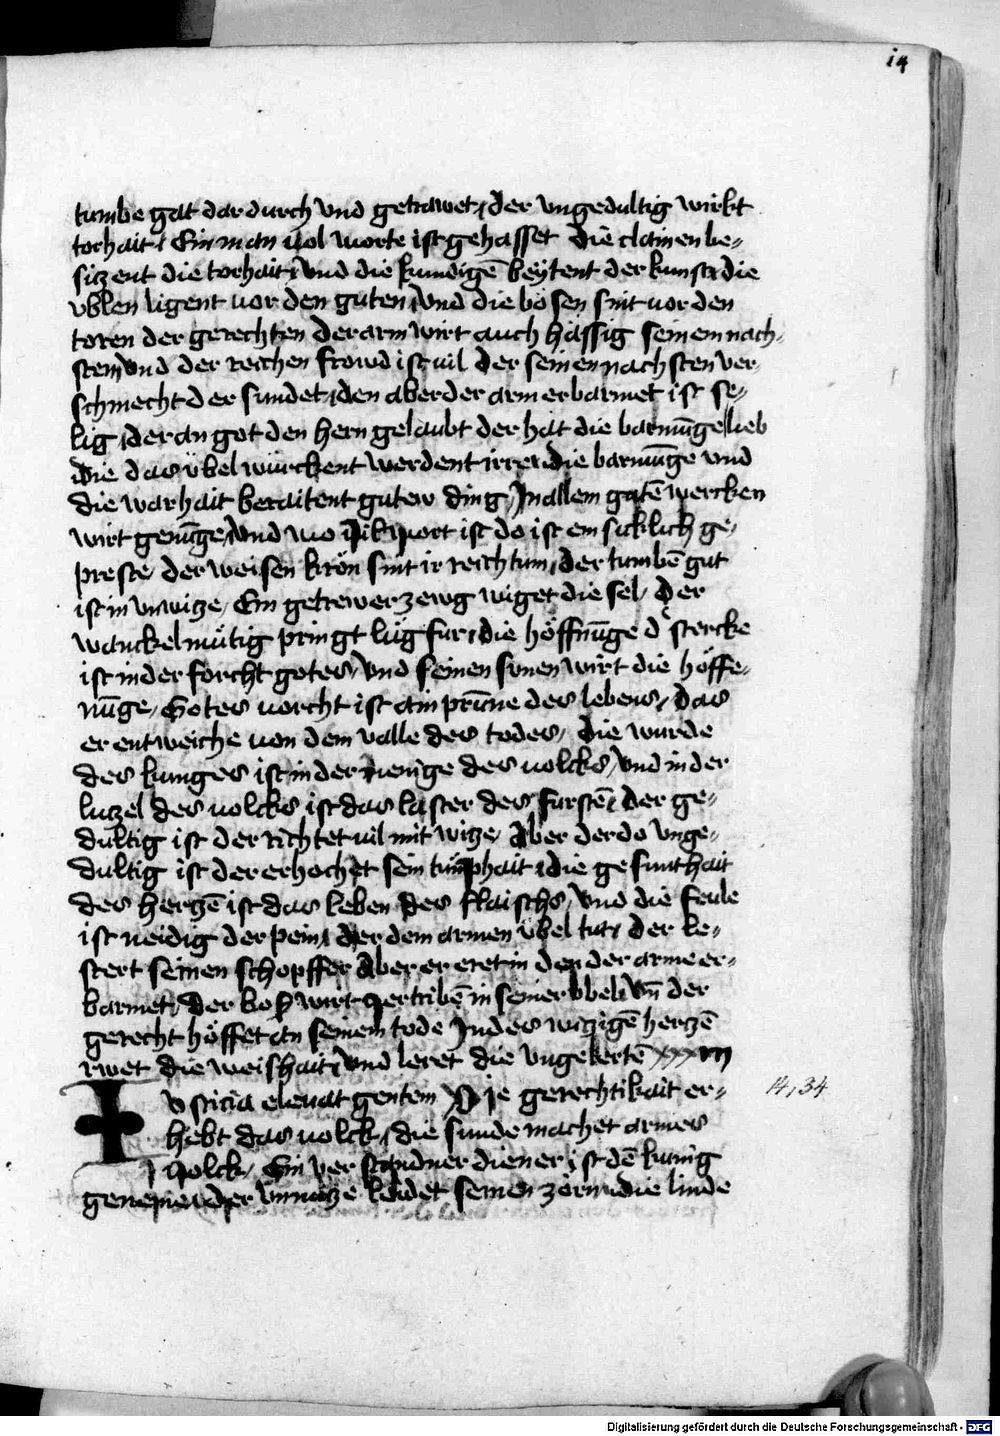 14
tumbe gat dar durch vnd getrawet, der vngedultig wirkt
torhait, Ein man uol worte ist gehasset die clainen be-
siczent die torhait, vnd die kundigē beytent der kunst, die
vblen ligent uor den guten, vnd die bösen sint uor den
toren der gerechten der arm wirt auch hässig seinem nach-
sten, vnd der reichen frowd ist uil der seinen nachsten ver-
schmecht der sundet, den aber der arm erbarmet ist se-
lig, der an got den hern gelaubt der hat die barmūge lieb
die das übel würckent werdent irre, die barmūge vnd
die warhait beraitent gutew ding, In allem gutē wercken
wirt genūge, vnd wo uil wort ist do ist ein sicklich ge-
preste, der weisen krön sint ir reichtum, der tumbē gut
ist in vnwitze, Ein getrewer zewg wiget die sel, der
wanckelmütig pringt lüg fur, die höffnūge d' stercke
ist in der forcht gotes, vnd seinen sunen wirt die höffe-
nūge, Gotes uorcht ist ain prūne des lebens, das
er entweiche uon dem valle des todes, die wurde
des kunges ist in der menige des uolcks, vnd in der
luczel des uolcks ist das laster des furstē, der ge-
dultig ist der richtet uil mit witze, Aber der do vnge-
dultig ist der erhochet sein tumphait, die gesunthait
des hertzē ist das leben des flaischs, vnd die feule
ist neidig der pein, der dem armen übel tut, der le-
stert seinen schopffer Aber er eret in den der arme er-
barmet, der boß wirt vertribē in seiner vbel, vn̄ der
gerecht höffet an seinem tode In des witzigē hertzē
rwet die weishait, vnd leret die vngelertē xxxiiii
Iusticia eleuat gentem Die gerechtikait er-
hebt das uolck, die sunde machet armes
uolck, Ein verstandner diener ist dē kunig
geneme, der vnnutze leidet seinen zorn, die linde
14,34
Digitalisierung gefördert durch die Deutsche Forschungsgemeinschaft - DFG